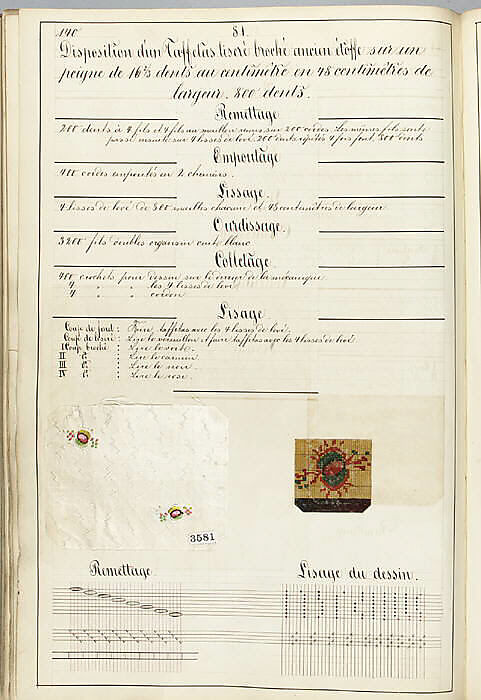 140
81.
Disposition d'un Taffetas liseré broché ancien étoffe sur un
peigne de 16⅔ dents au centimètre en 48 centimètres de
largeur. 800 dents.
Remettage
200 dents à 4 fils et 4 fils au maillon remis sur 200 cordes. Les mêmes fils sont
passé ensuite sur 4 lisses de levé. 200 dents répétés 4 fois font 800 dents
Empoutage
400 cordes empoutés en 2 chemins.
Lissage.
4 lisses de levé de 800 mailles chacune et 48 centimètres de largeur
Ourdissage.
3200 fils doubles organsin cuit blanc
Colletage.
400 crochets pour dessin sur le derrière de la mécanique
4 " " les 4 lisses de levé
4 " " cordon
Lisage.
Coup de fond : Faire taffetas avec les 4 lisses de levé.
Coup de liseré : Lire le vermillon et faire taffetas avec les 4 lisses de levé
I Coup broché : Lire le verte.
II d° : Lire le carmin
III d° : Lire le noir
IV d° : Lire le rose.
3581
Remettage
Lisage du dessin.